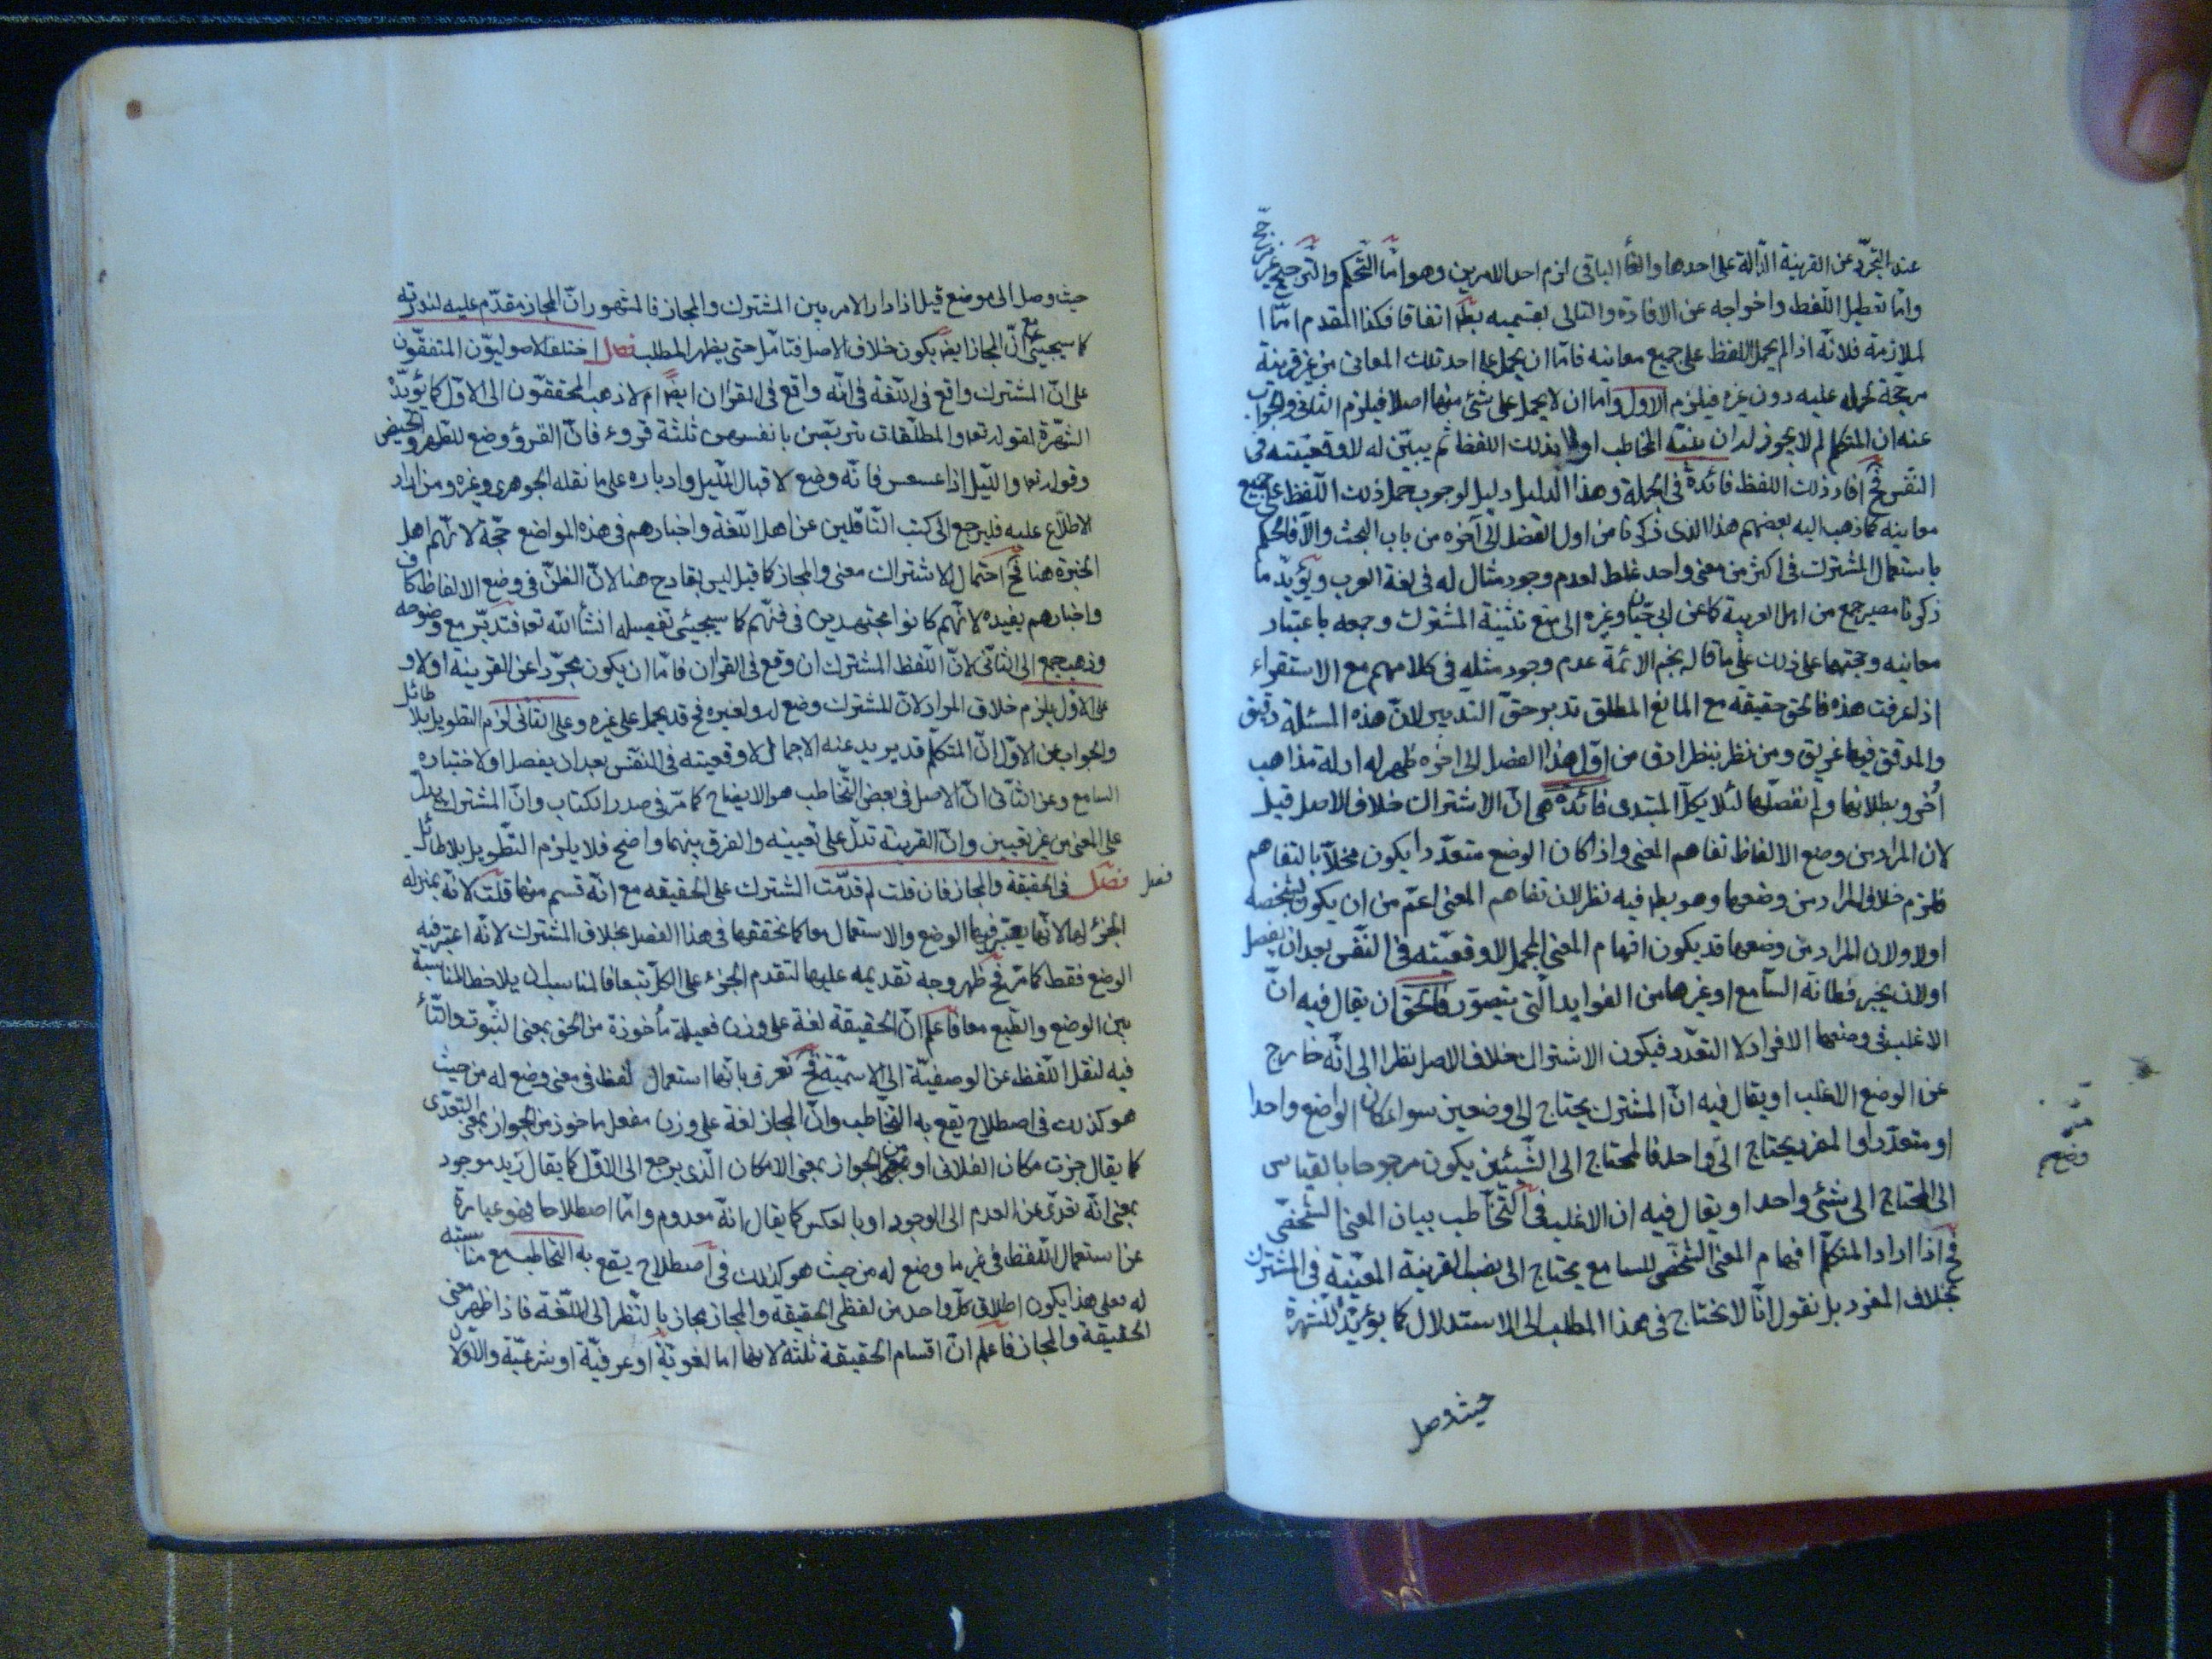 عند التجرّد عن القرينة الدّالة على احدها والغأ الباقى لزم احد الامرين وهو امّا التّحكم والتّرجيح من غير مرجّح
وامّا تعطيل اللّفظ واخراجه عن الافادة والتالى بقسميه بط اتفاقا فكذا المقدم امّا ا
لملازمة فلانّه اذا لم يحمل اللفظ على جميع معانيه فامّا ان يحمل على احد تلك المعانى من غير قرينة
مرجحة لحمله عليه دون غيره فيلزم الاول وامّا ان لا يحمل على شئ منها اصلا فيلزم الثانى والجواب
عنه ان المتكلم لم لا يجوز له ان ينبّه المخاطب اولا بذلك اللفظ ثم يبيّن له لاوقعيّته فى
النّفس فح افاد ذلك اللفظ فائدة فى الجملة وهذا الدليل دليل لوجوب حمل ذلك اللّفظ على جميع
معانيه كما ذهب اليه بعضهم هذا الذى ذكرنا من اول الفصل الى آخره من باب البحث والّا فالحكم
باستعمال المشترك فى اكثر من معنى واحد غلط لعدم وجود مثال له فى لغة العرب ويؤيّد ما
ذكرنا مصير جمع من اهل العربية كما عن ابى حيّان وغيره الى منع تثنية المشترك وجمعه باعتبار
معانيه وحجتهما على ذلك على ما قاله نجم الائمة عدم وجود مثله فى كلامهم مع الاستقراء
اذا عرفت هذه فالحق حقيقة مع المانع المطلق تدبر حقّ التدبير لانّ هذه المسئلة دقيق
والمدقق فيها غريق ومن نظر بنظر ادق من اوّل هذا الفصل الى اخره ظهر له ادلة مذاهب
أخر وبطلانها ولم نفصلها لئلا يكلّ المبتدى فائدة هى انّ الاشتراك خلاف الاصل قيل
لان المراد من وضع الالفاظ تفاهم المعنى واذا كان الوضع متعدّدا يكون مخلّا بالتفاهم
فلزم خلاف المراد من وضعها وهو بط فيه نظر لان تفاهم المعنى اعمّ من ان يكون بشخصه
اولا ولان المراد من وضعها قد يكون افهام المعنى المجمل لاوقعيّته فى النّفس بعد ان يفصل
اولان يخبر فطانة السّامع او غيرها من الفوايد الّتى يتصوّر فالحق ان يقال فيه انّ
الاغلب فى وضعها الافراد لا التعدّد فيكون الاشتراك خلاف الاصل نظرا الى انّه خارج
عن الوضع الاغلب او يقال فيه انّ المشترك يحتاج الى وضعين سواء كان الواضع واحدا
او متعدّدا والمفرد يحتاج الى واحد فالمحتاج الى الشّيئين يكون مرجوحا بالقياس
الى المحتاج الى شئ واحد او يقال فيه ان الاغلب فى التّخاطب بيان المعنى الشّخصّى
فح اذا اراد المتكلّم افهام المعنى الشّخصّى للسامع يحتاج الى نصب القرينة المعيّنة فى المشترك
بخلاف المفرد بل نقول انّا لا نحتاج فى هذا المطلب الى الاستدلال كما يؤيّده الشّهرة
حيث وصل
وضع
حيث وصل الى موضع قيل اذا دار الامر بين المشترك والمجاز فالمشهور انّ المجاز مقدّم عليه لندرته
كما سيجيئ مع انّ المجاز ايض يكون خلاف الاصل فتامّل حتى يظهر المطلب فصل اختلف الاصوليّون المتفقّون
على انّ المشترك واقع فى اللّغة فى انّه واقع فى القرآن ايض ام لا ذهب المحققّون الى الاوّل كما يؤيّده
الشّهرة لقوله تعا والمطلّقات يتربّصن بانفسهن ثلثة قروء فانّ القرؤ وضع للطهر والحيض
وقوله تعا واللّيل اذا عسعس فانّه وضع لاقبال اللّيل وادباره على ما نقله الجوهرى وغيره ومن اراد
الاطّلاع عليه فليرجع الى كتب النّاقلين عن اهل اللّغة واخبارهم فى هذه المواضع حجّة لانّهم اهل
الخبرة هنا فح احتمال الاشتراك معنى والمجاز كما قيل ليس بقادح هنا لانّ الظنّ فى وضع الالفاظ كاف
واخبارهم يفيده لانّهم كانوا مجتهدين فى فنّهم كما سيجيئ تفصيله انشأ اللّه تعا فتدبّر مع وضوحه
وذهب جمع الى الثانى لانّ اللّفظ المشترك ان وقع فى القرآن فامّا ان يكون مجرّدا عن القرينة اولا و
على الاوّل يلزم خلاف المراد لانّ المشترك وضع له ولغيره فح قد يحمل على غيره وعلى الثانى لزم التطويل بلا طائل
والجواب عن الاوّل انّ المتكلّم قد يريد عنه الاجمال لاوقعيته فى النّفس بعد ان يفصل اولا ختباره
السامع وعن الثّانى انّ الاصل فى بعض التّخاطب هو الايضاح كما مرّ فى صدر الكتاب وانّ المشترك يدلّ
على المعنى من غير تعيين وانّ القرينة تدلّ على تعيينه والفرق بينهما واضح فلا يلزم التّطويل بلا طائل
فصل
فصل فى الحقيقة والمجاز فان قلت لم قدّمت المشترك على الحقيقه مع انّه قسم منها قلت لانّه بمنزلة
الجزء لها لانّها يعتبر فيها الوضع والاستعمال معا كما نحققها فى هذا الفصل بخلاف المشترك لانّه اعتبر فيه
الوضع فقط كما مرّ فح ظهر وجه تقديمه عليها لتقدم الجزء على الكلّ تبعا فالمناسب ان يلاحظ المناسبة
بين الوضع والطّبع معا فاعلم انّ الحقيقة لغة على وزن فعيلة مأخوذة من الحق بمعنى الثّبوت والتّأ
فيه لنقل اللّفظ عن الوصفيّة الى الاسميّة فح تعرف بانّها استعمال لفظ فى معنى وضع له من حيث
هو كذلك فى اصطلاح يقع به التخاطب وانّ المجاز لغة على وزن مفعل ماخوذ من الجواز بمعنى التعدّى
كما يقال جزت مكان الفلانى او من الجواز بمعنى الامكان الّذى يرجع الى الاوّل كما يقال زيد موجود
بمعنى انّه تعدّى عن العدم الى الوجود او بالعكس كما يقال انّه معدوم وامّا اصطلاحا فهو عبارة
عن استعمال اللّفظ فى غير ما وضع له من حيث هو كذلك فى اصطلاح يقع به التخاطب مع مناسبته
له فعلى هذا يكون اطلاق كلّ واحد من لفظى الحقيقة والمجاز مجاز بالنّظر الى اللّغة فاذا ظهر معنى
الحقيقة والمجاز فاعلم انّ اقسام الحقيقة ثلثة لانها امّا لغويّة او عرفيّة او شرعيّة والاولان